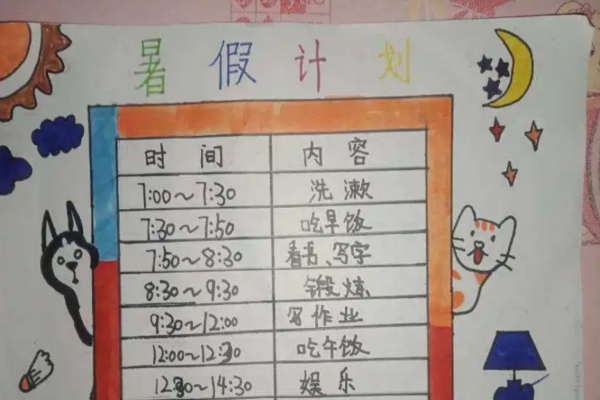 暑假计划
时间 内容
7:00～7:30 洗漱
7:30～7:50 吃早饭
7:50～8:30 看书、写字
8:30～9:30 锻炼
9:30～12:00 写作业
12:00～12:30 吃午饭
12:30～14:30 娱乐